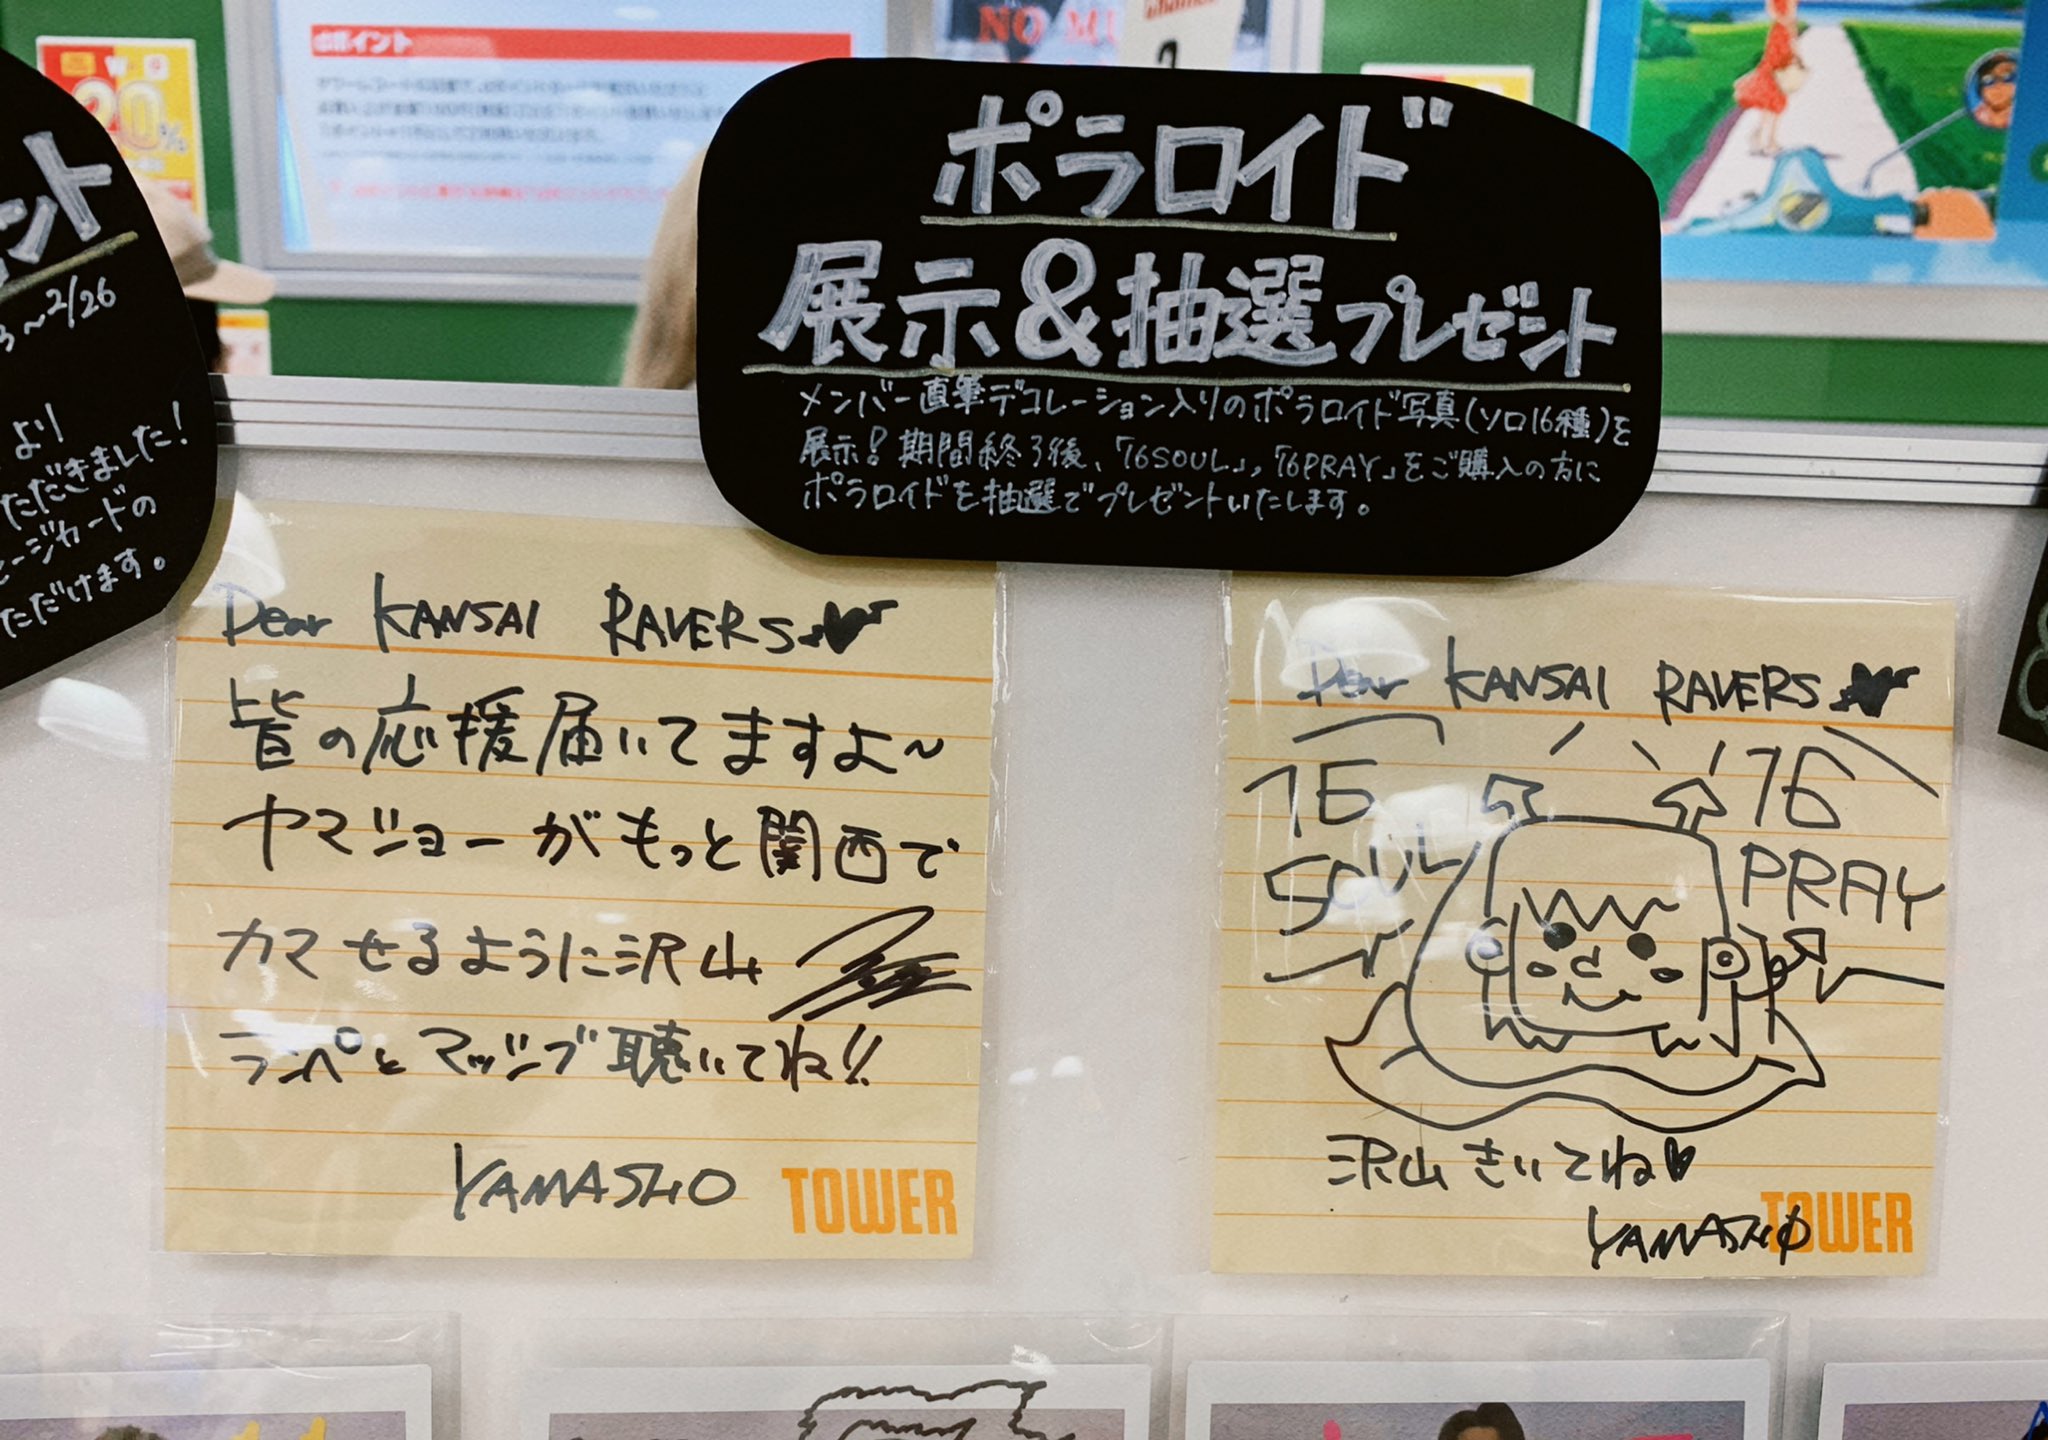 ポイント
NO MU
20%
ント
3~2/26
より
ただきました!
セージカードの
ただけます。
ポラロイド
展示&抽選プレゼント
メンバー直筆デコレーション入りのポラロイド写真(ソロ16種)を
展示!期間終了後、「16SOUL」,「16PRAY」をご購入の方に
ポラロイドを抽選でプレゼントいたします。
Dear KANSAI RAVERS
皆の応援届いてますよ~
ヤマショーがもっと関西で
カマせるように沢山
ランペとマッシブ聴いてね!!
YAMASHO
TOWER
Dear KANSAI RAVERS
16 SOUL
16 PRAY
沢山きいてね♥
YAMASHO
TOWER